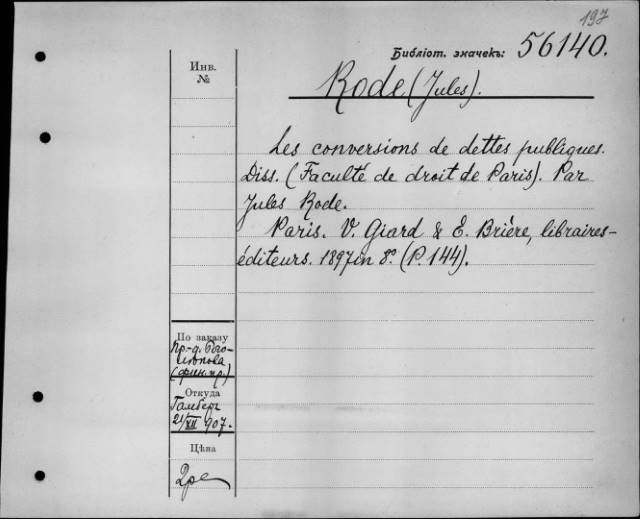 197
Библіот. значекъ: 56140.
Инв.
№
Rode (Jules).
Les conversions de dettes publiques.
Diss. (Faculté de droit de Paris). Par
Jules Rode.
Paris. V. Giard & E. Brière, libraires-
éditeurs. 1897 in 8º. (P. 144).
По заказу
пр.-д.
(фин. пр.)
Откуда
Гамберъ
21/XII 907.
Цѣна